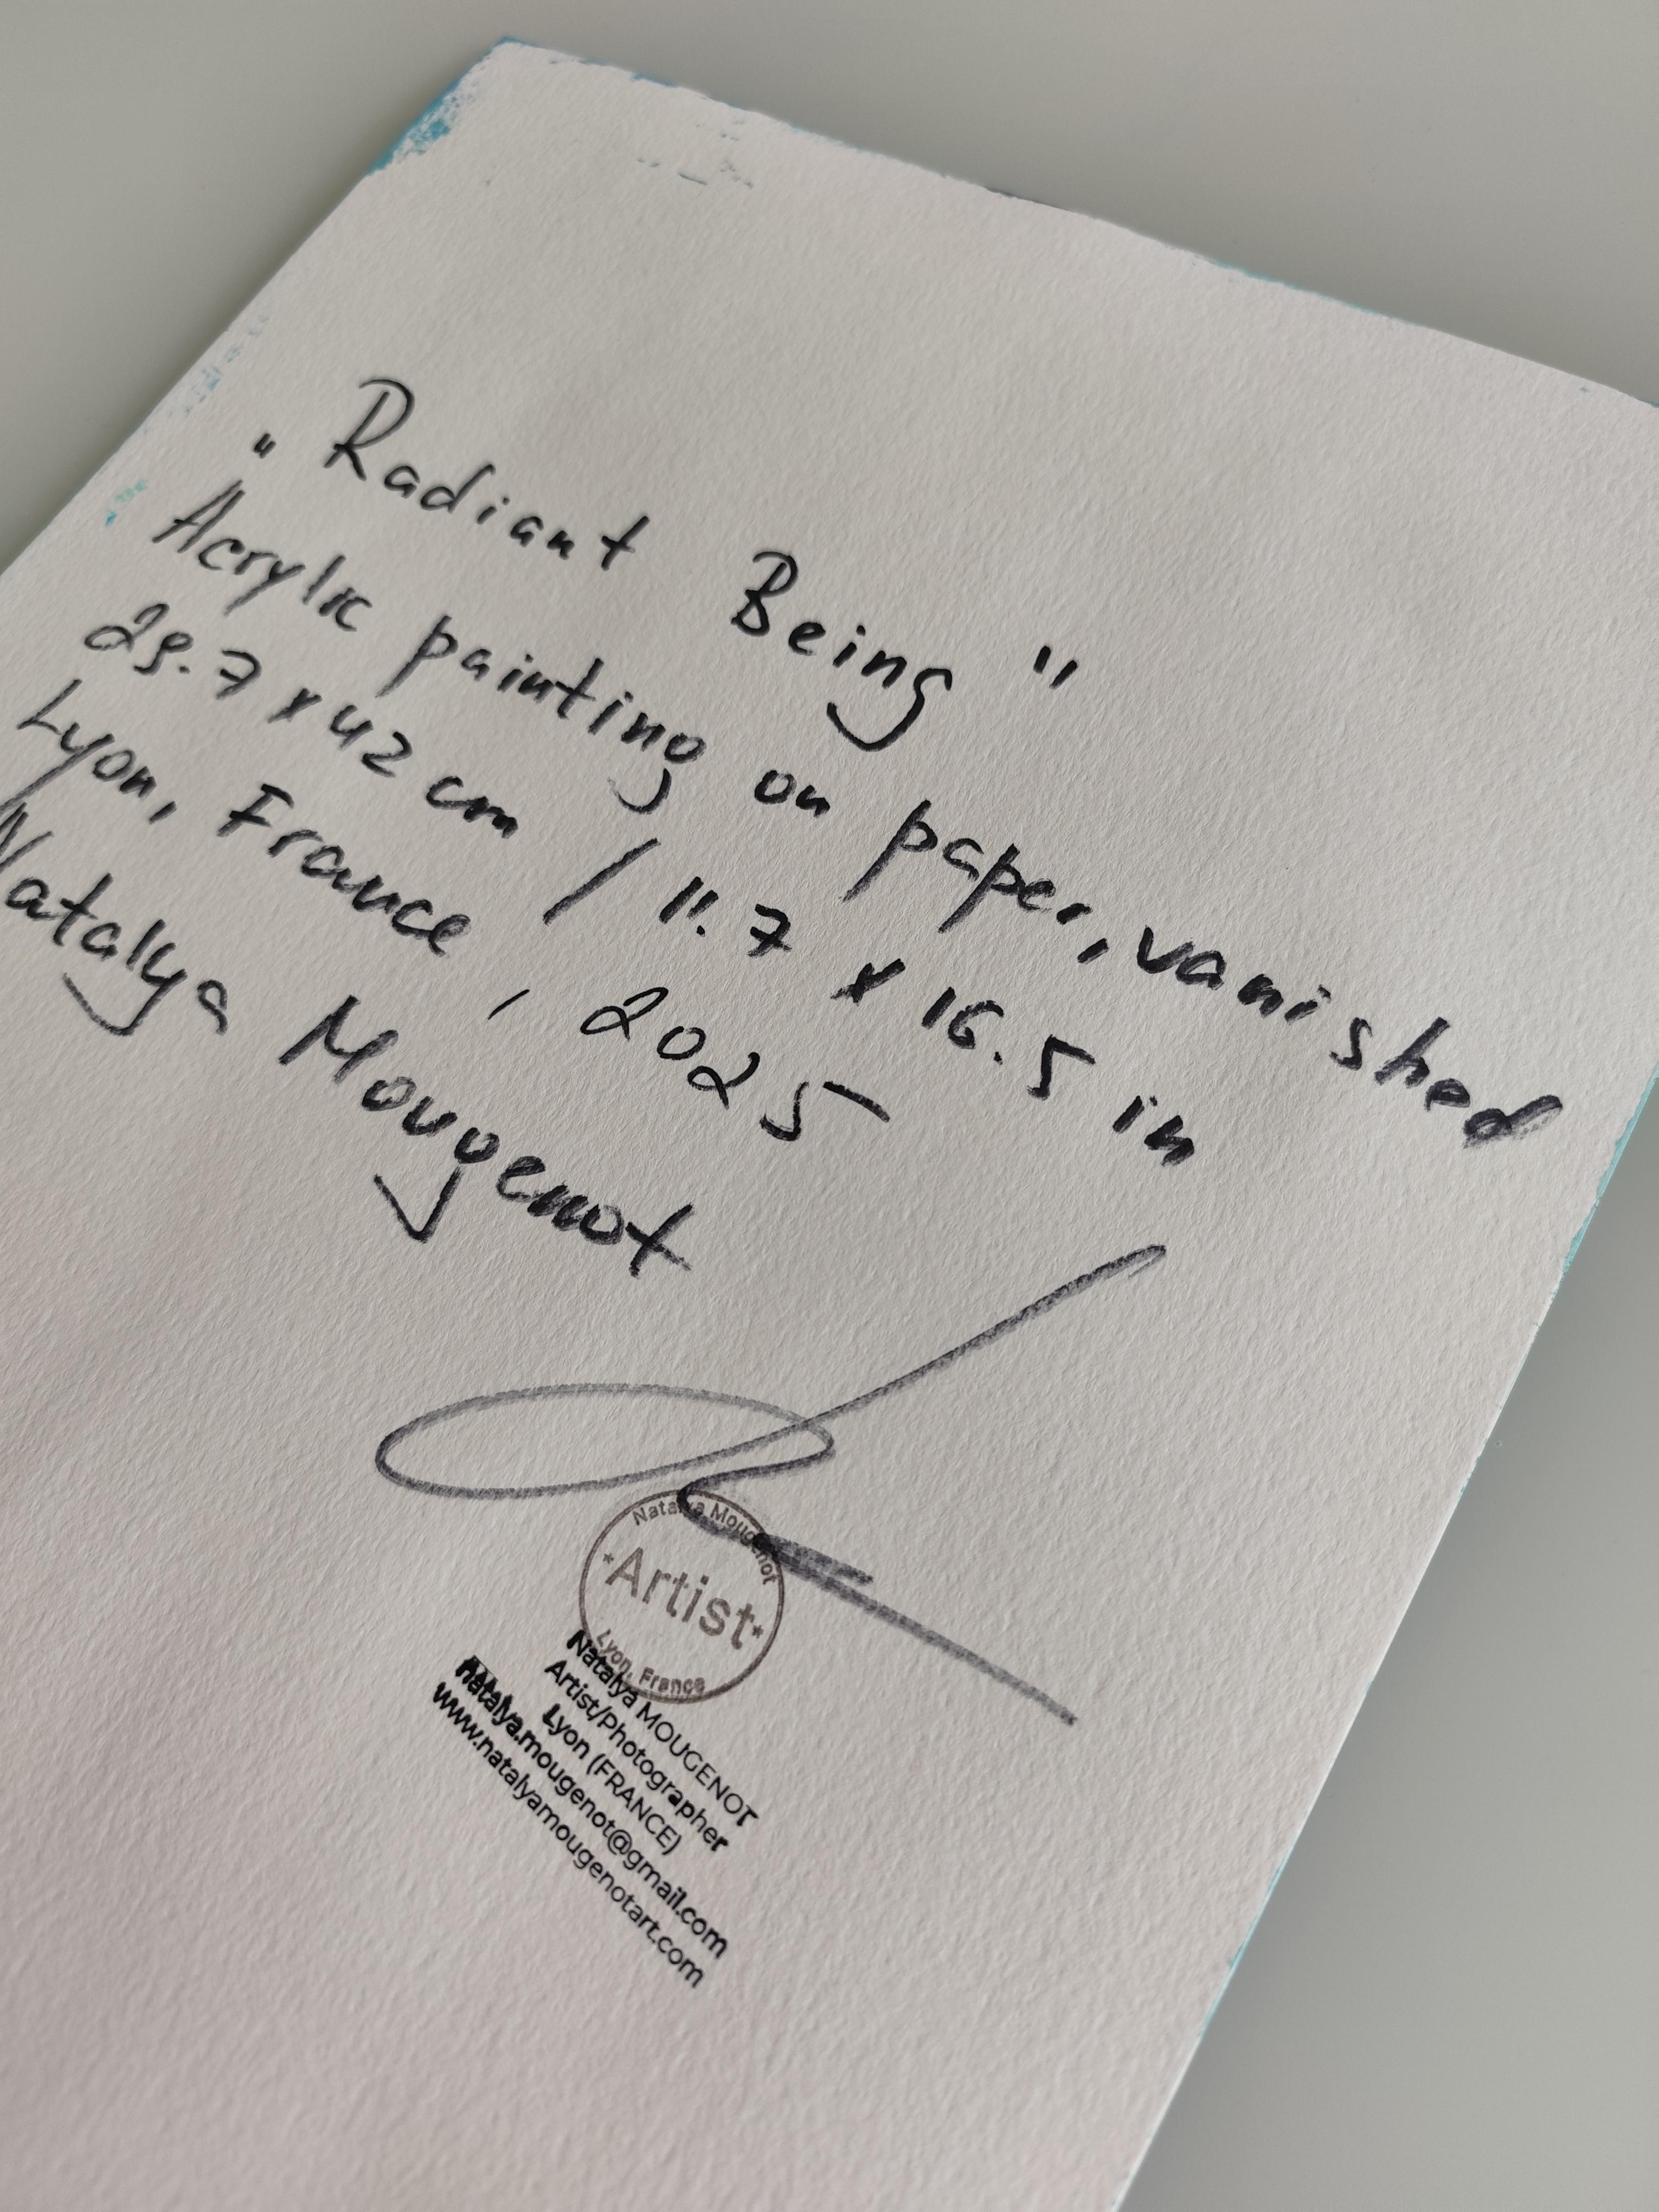 "Radiant Being"
Acrylic painting on paper, vanished
29.7 x 42 cm / 11.7 x 16.5 in
Lyon, France, 2025
Natalya Mougenot
Natalya Mougenot
Artist
Lyon, France
Natalya MOUGENOT
Artist/Photographer
Lyon (FRANCE)
natalya.mougenot@gmail.com
www.natalyamougenotart.com